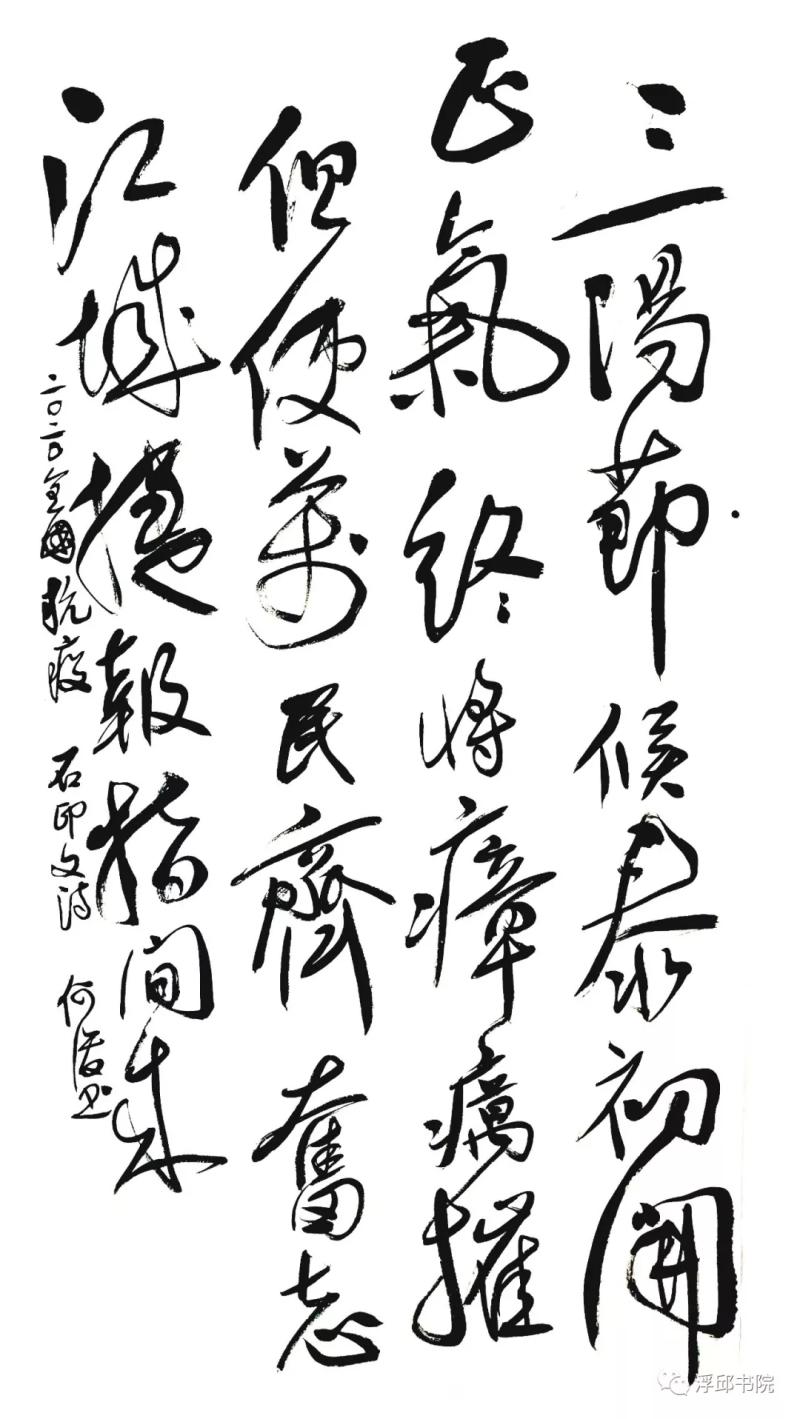 三陽節候泰初開
正氣終將瘴癘摧
但使萬民齊奮志
江城捷報指間來
二〇二〇全國抗疫 石印文詩 何滔書
浮邱书院